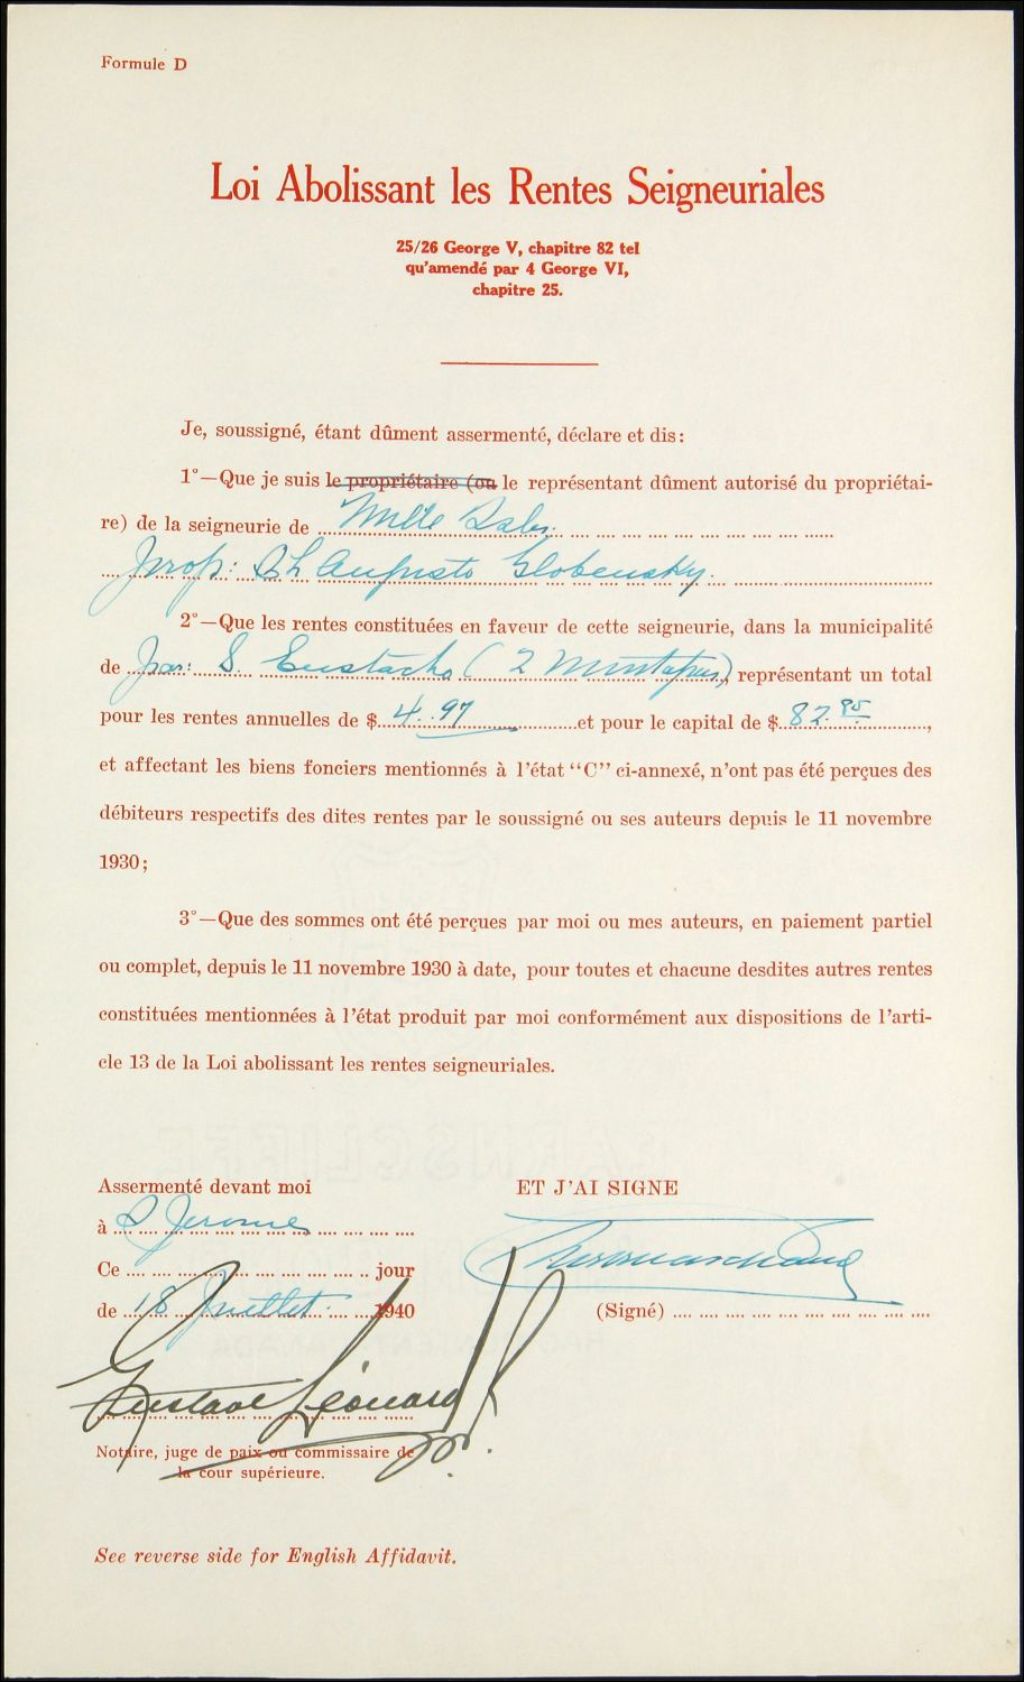 Formule D
Loi Abolissant les Rentes Seigneuriales
25/26 George V, chapitre 82 tel
qu'amendé par 4 George VI,
chapitre 25.
Je, soussigné, étant dûment assermenté, déclare et dis:
1°—Que je suis le propriétaire (ou le représentant dûment autorisé du propriétai-
re) de la seigneurie de Mille Isles
Prop: Ch Auguste Globensky.
2°—Que les rentes constituées en faveur de cette seigneurie, dans la municipalité
de par: S. Eustache (2 Montagnes) représentant un total
pour les rentes annuelles de $ 4.97 et pour le capital de $ 82.85,
et affectant les biens fonciers mentionnés à l'état "C" ci-annexé, n'ont pas été perçues des
débiteurs respectifs des dites rentes par le soussigné ou ses auteurs depuis le 11 novembre
1930;
3°—Que des sommes ont été perçues par moi ou mes auteurs, en paiement partiel
ou complet, depuis le 11 novembre 1930 à date, pour toutes et chacune desdites autres rentes
constituées mentionnées à l'état produit par moi conformément aux dispositions de l'arti-
cle 13 de la Loi abolissant les rentes seigneuriales.
Assermenté devant moi
ET J'AI SIGNE
à S Jerome
Ce jour
de 18 Juillet 1940
(Signé)
Gustave Léonard
Notaire, juge de paix ou commissaire de
la cour supérieure.
See reverse side for English Affidavit.